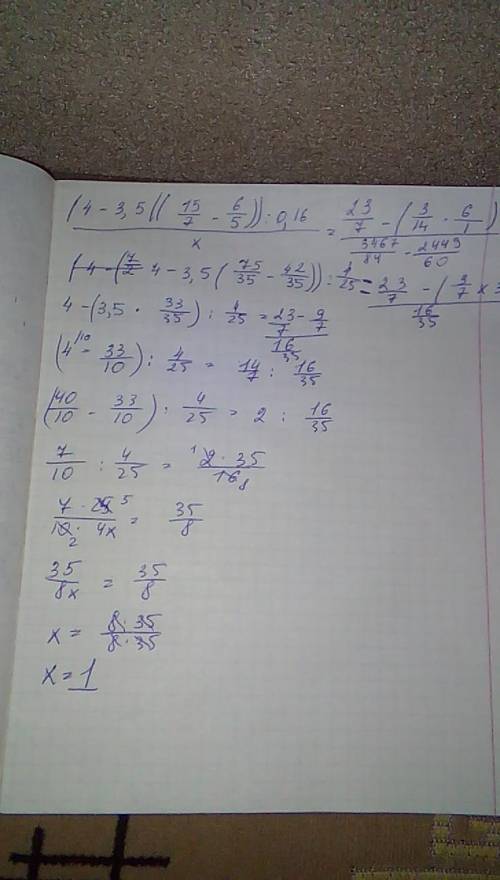 (4 - 3,5 ((15/7 - 6/5)) : 0,16 / x = 23/7 - (3/14 · 6/1) / 3467/84 - 2449/60
(4 - (7/2 4 - 3,5 (75/35 - 42/35)) : 4/25 = 23/7 - (9/7 x 3 / 16/35
4 - (3,5 · 33/35) : 4/25 = 23/7 - 9/7 / 16/35
(4 /10 - 33/10) : 4/25 = 14/7 : 16/35
(40/10 - 33/10) : 4/25 = 2 : 16/35
7/10 : 4/25 = 1 2 · 35 / 16 8
7 · 25 5 / 10 · 2 4x = 35/8
35/8x = 35/8
x = 8 · 35 / 8 · 35
x = 1